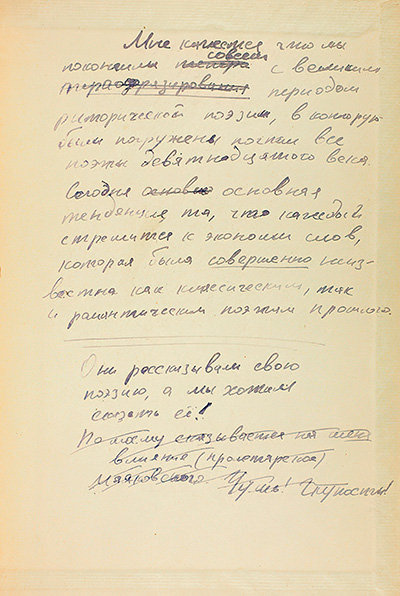 Мне кажется что мы
совсем
покончили теперь с великим
перифразирования периодом
риторической поэзии, в которую
были погружены почти все
поэты девятнадцатого века.
Сегодня основно основная
тенденция та, что каждый
стремится к экономии слов,
которая была совершенно неиз-
вестна как классическим, так
и романтическим поэтам прошлого.
Они рассказывали свою
поэзию, а мы хотим
сказать её!
По моему сказывается на мне
влияние (пролетарское)
Маяковского. Чушь! Глупости!